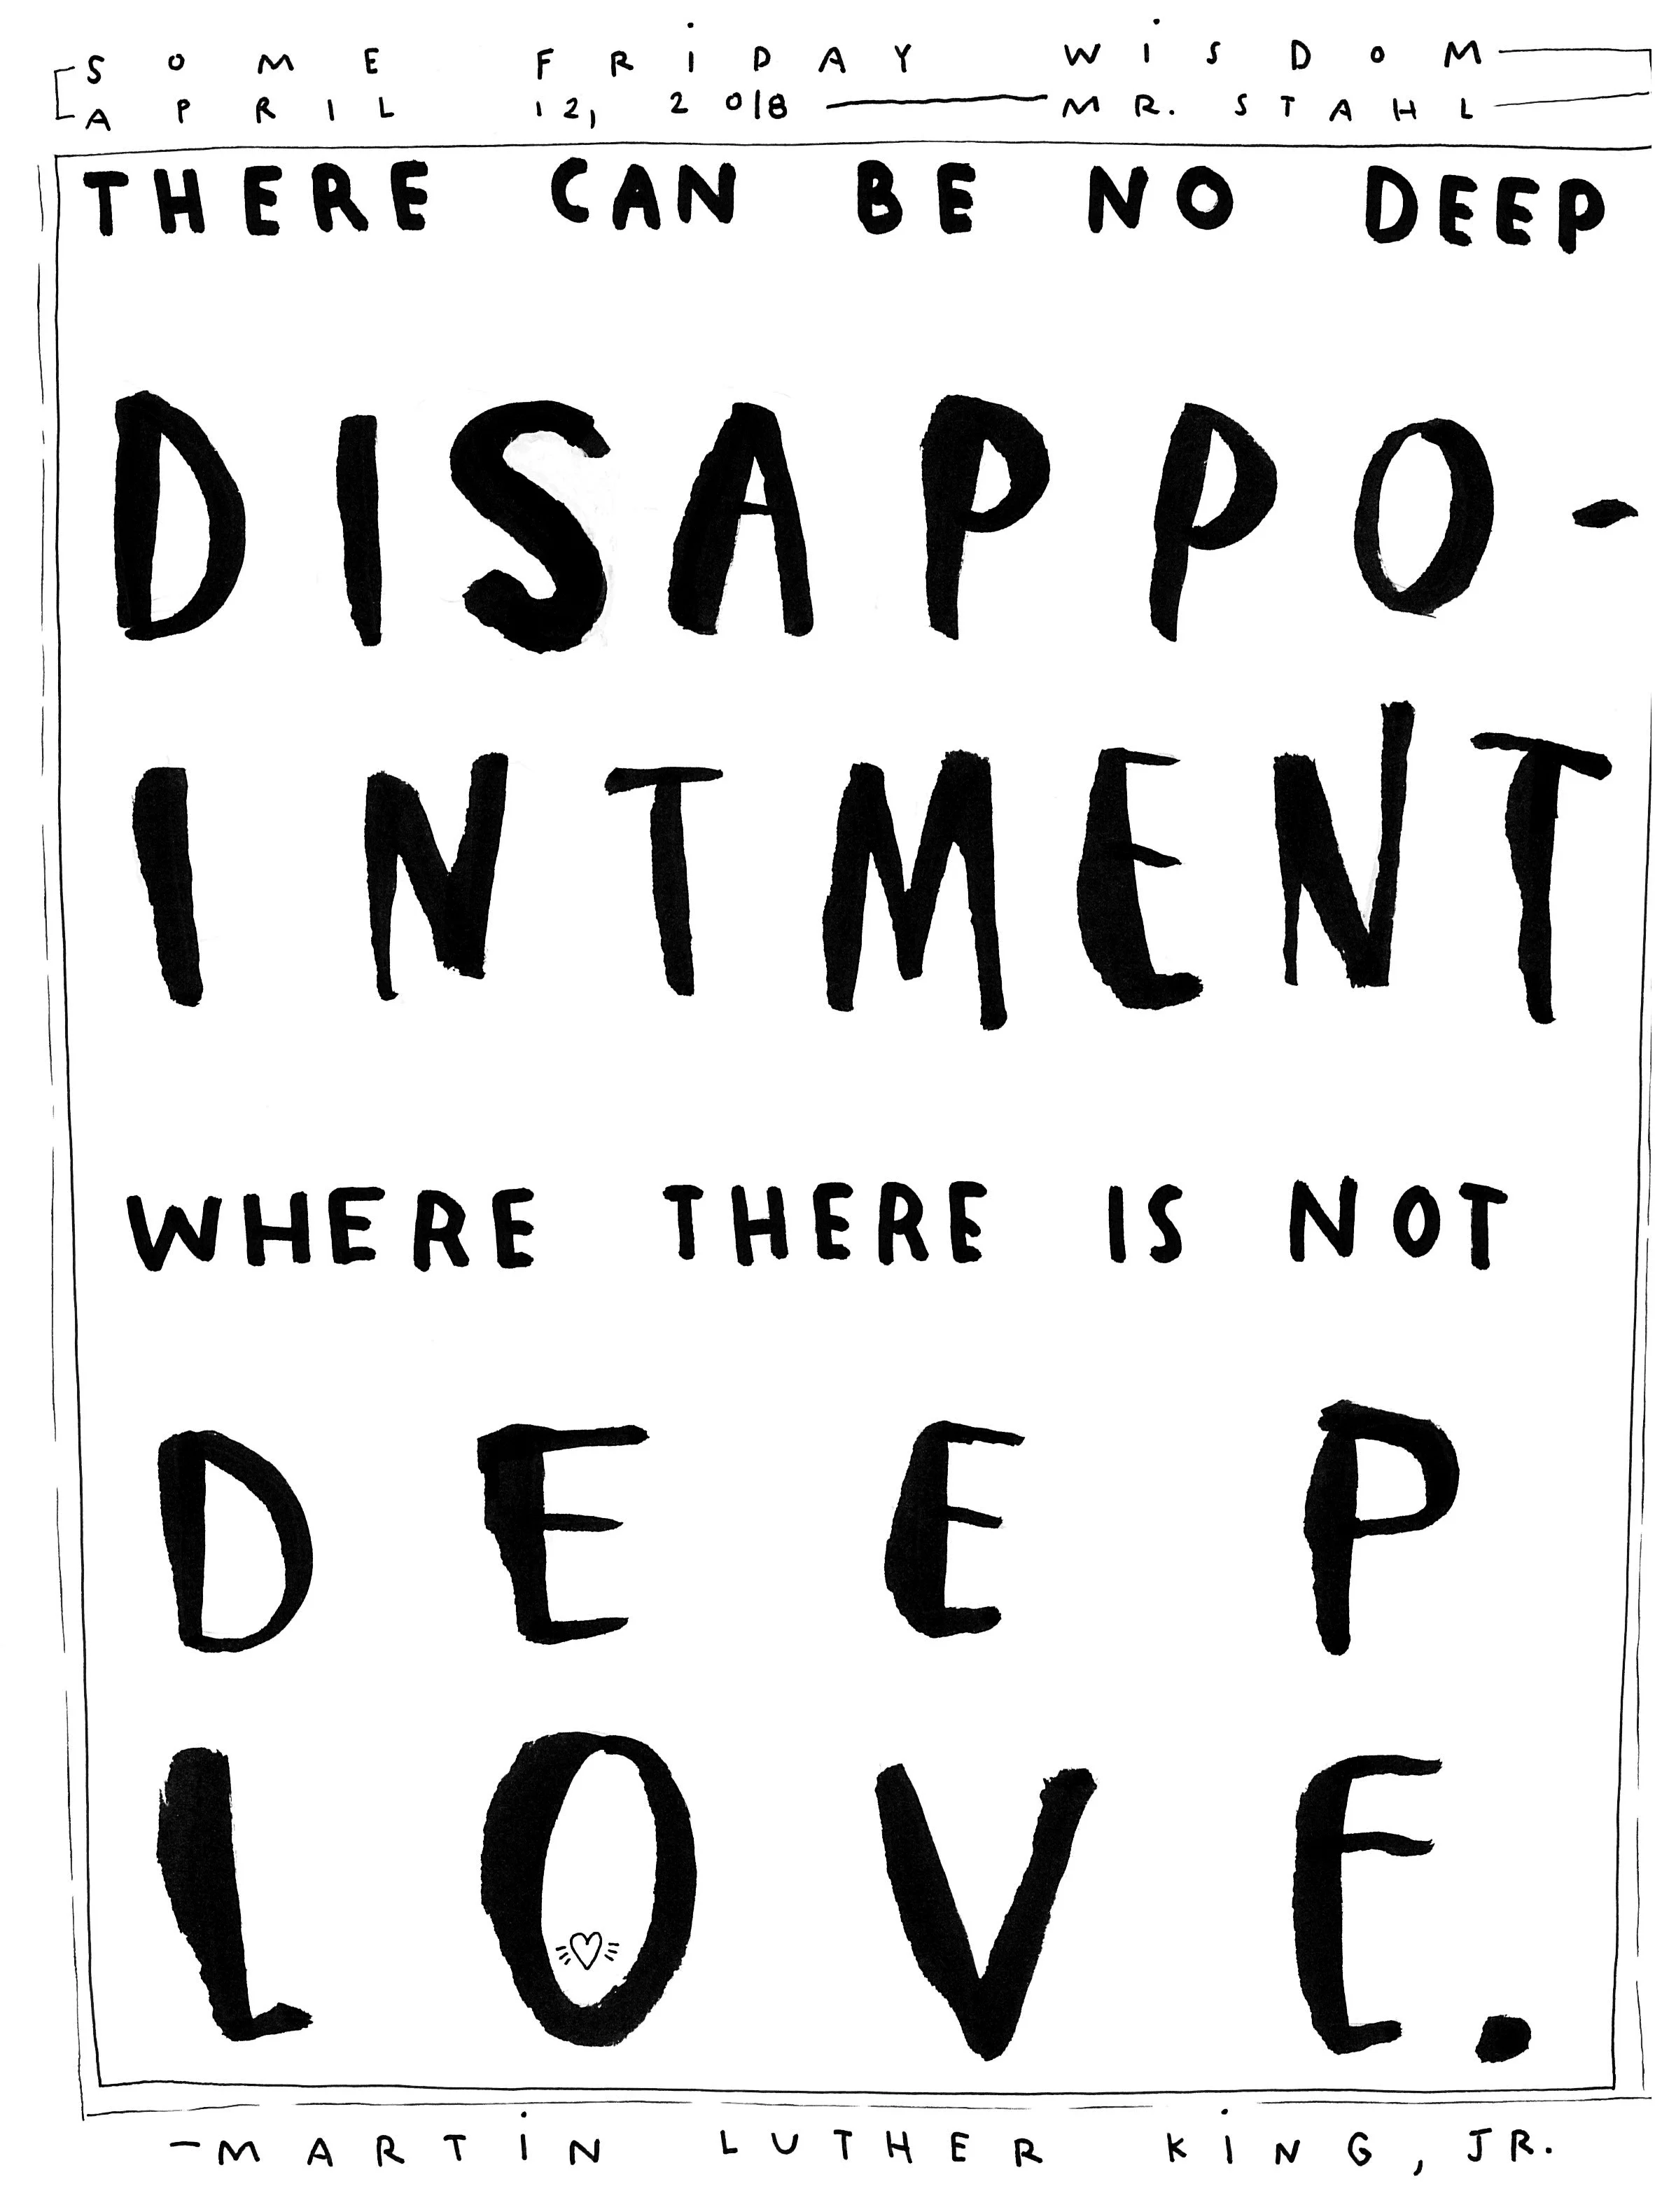 SOME FRiDAY WiSDOM
APRIL 12, 2018 — MR. STAHL
THERE CAN BE NO DEEP
DISAPPO-
INTMENT
WHERE THERE IS NOT
DEEP
LOVE.
—MARTiN LUTHER KiNG, JR.